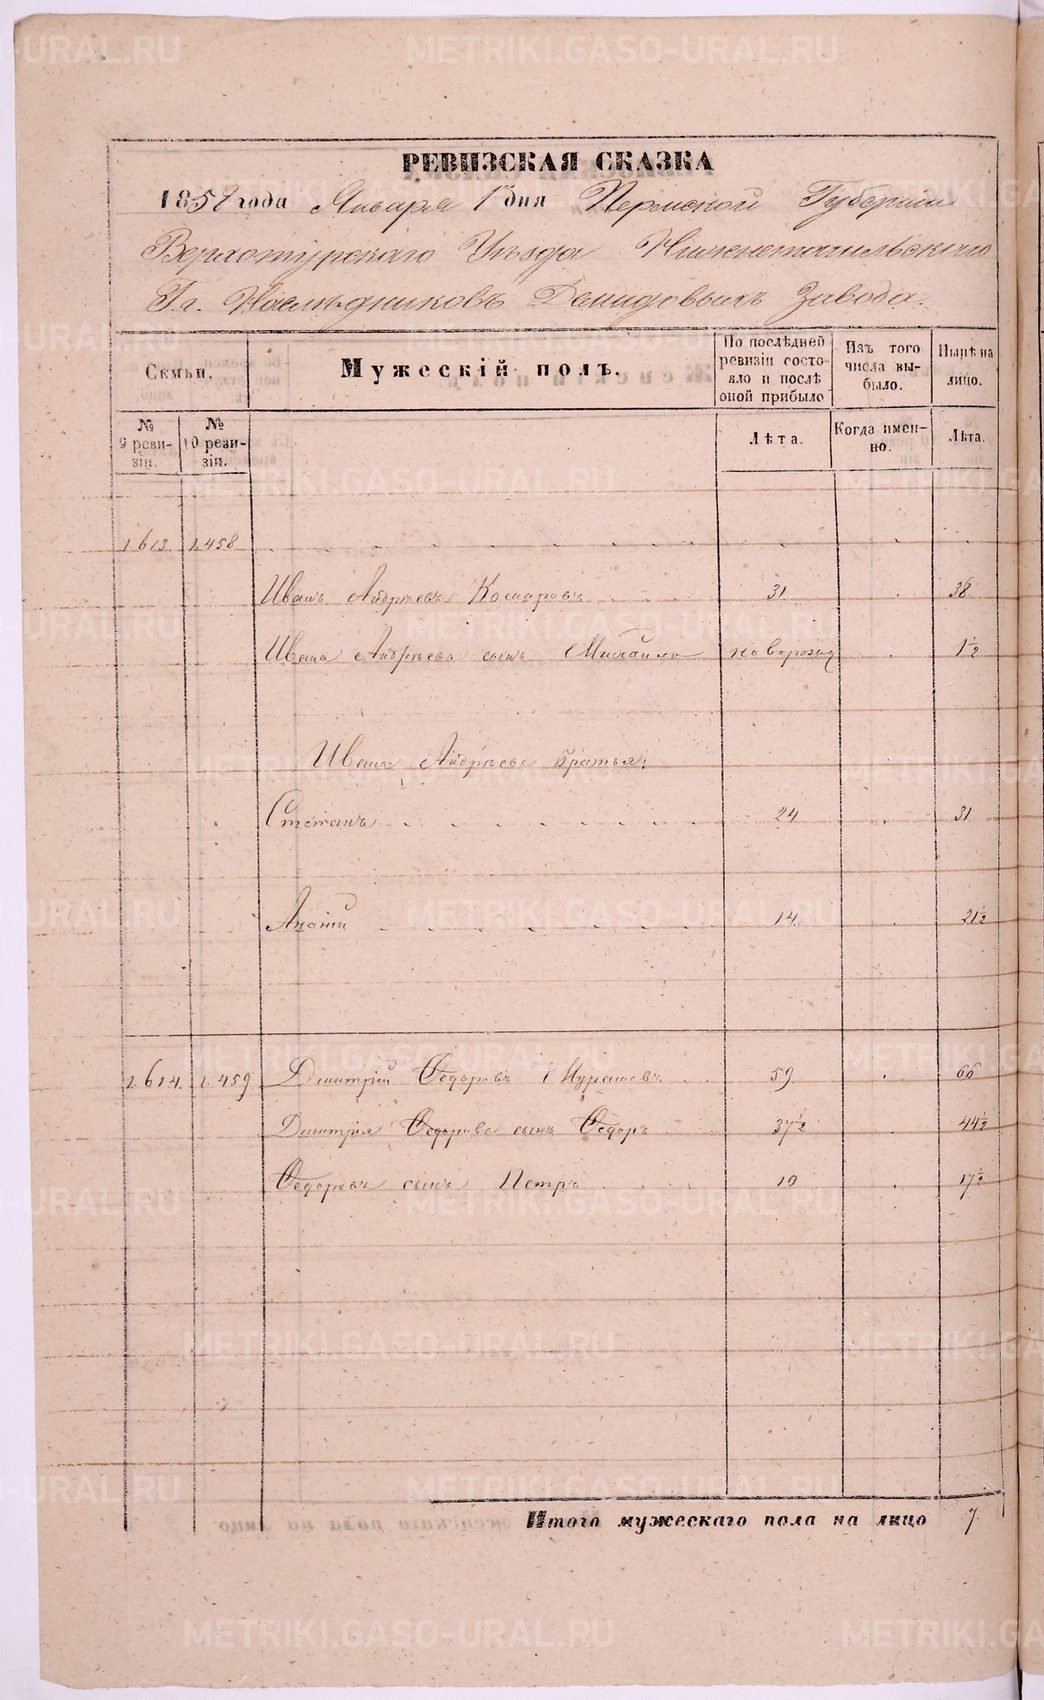 РЕВИЗСКАЯ СКАЗКА
1858 года Января 1 дня Пермской Губернии
Верхотурскаго Уезда Нижнетагильскаго
Гг. Наследниковъ Демидовыхъ Завода.
Семьи.
Мужескій полъ.
По послѣдней ревизіи состояло и послѣ оной прибыло
Изъ того числа выбыло.
Нынѣ на лицо.
№ 9 ревизіи.
№ 10 ревизіи.
Лѣта.
Когда именно.
Лѣта.
1613 1458
Иванъ Андреевъ 31 38
Ивана Андреева сынъ Михайло новорожд 1½
Ивана Андреева братья:
Степанъ 24 31
Ананій 14 21½
1614 1459 Дмитрій Ѳедоровъ Мурашовъ 59 66
Дмитрія Ѳедорова сынъ Ѳедоръ 37½ 44½
Ѳедоровъ сынъ Петръ 10 17½
Итого мужескаго пола на лицо 7
METRIKI.GASO-URAL.RU